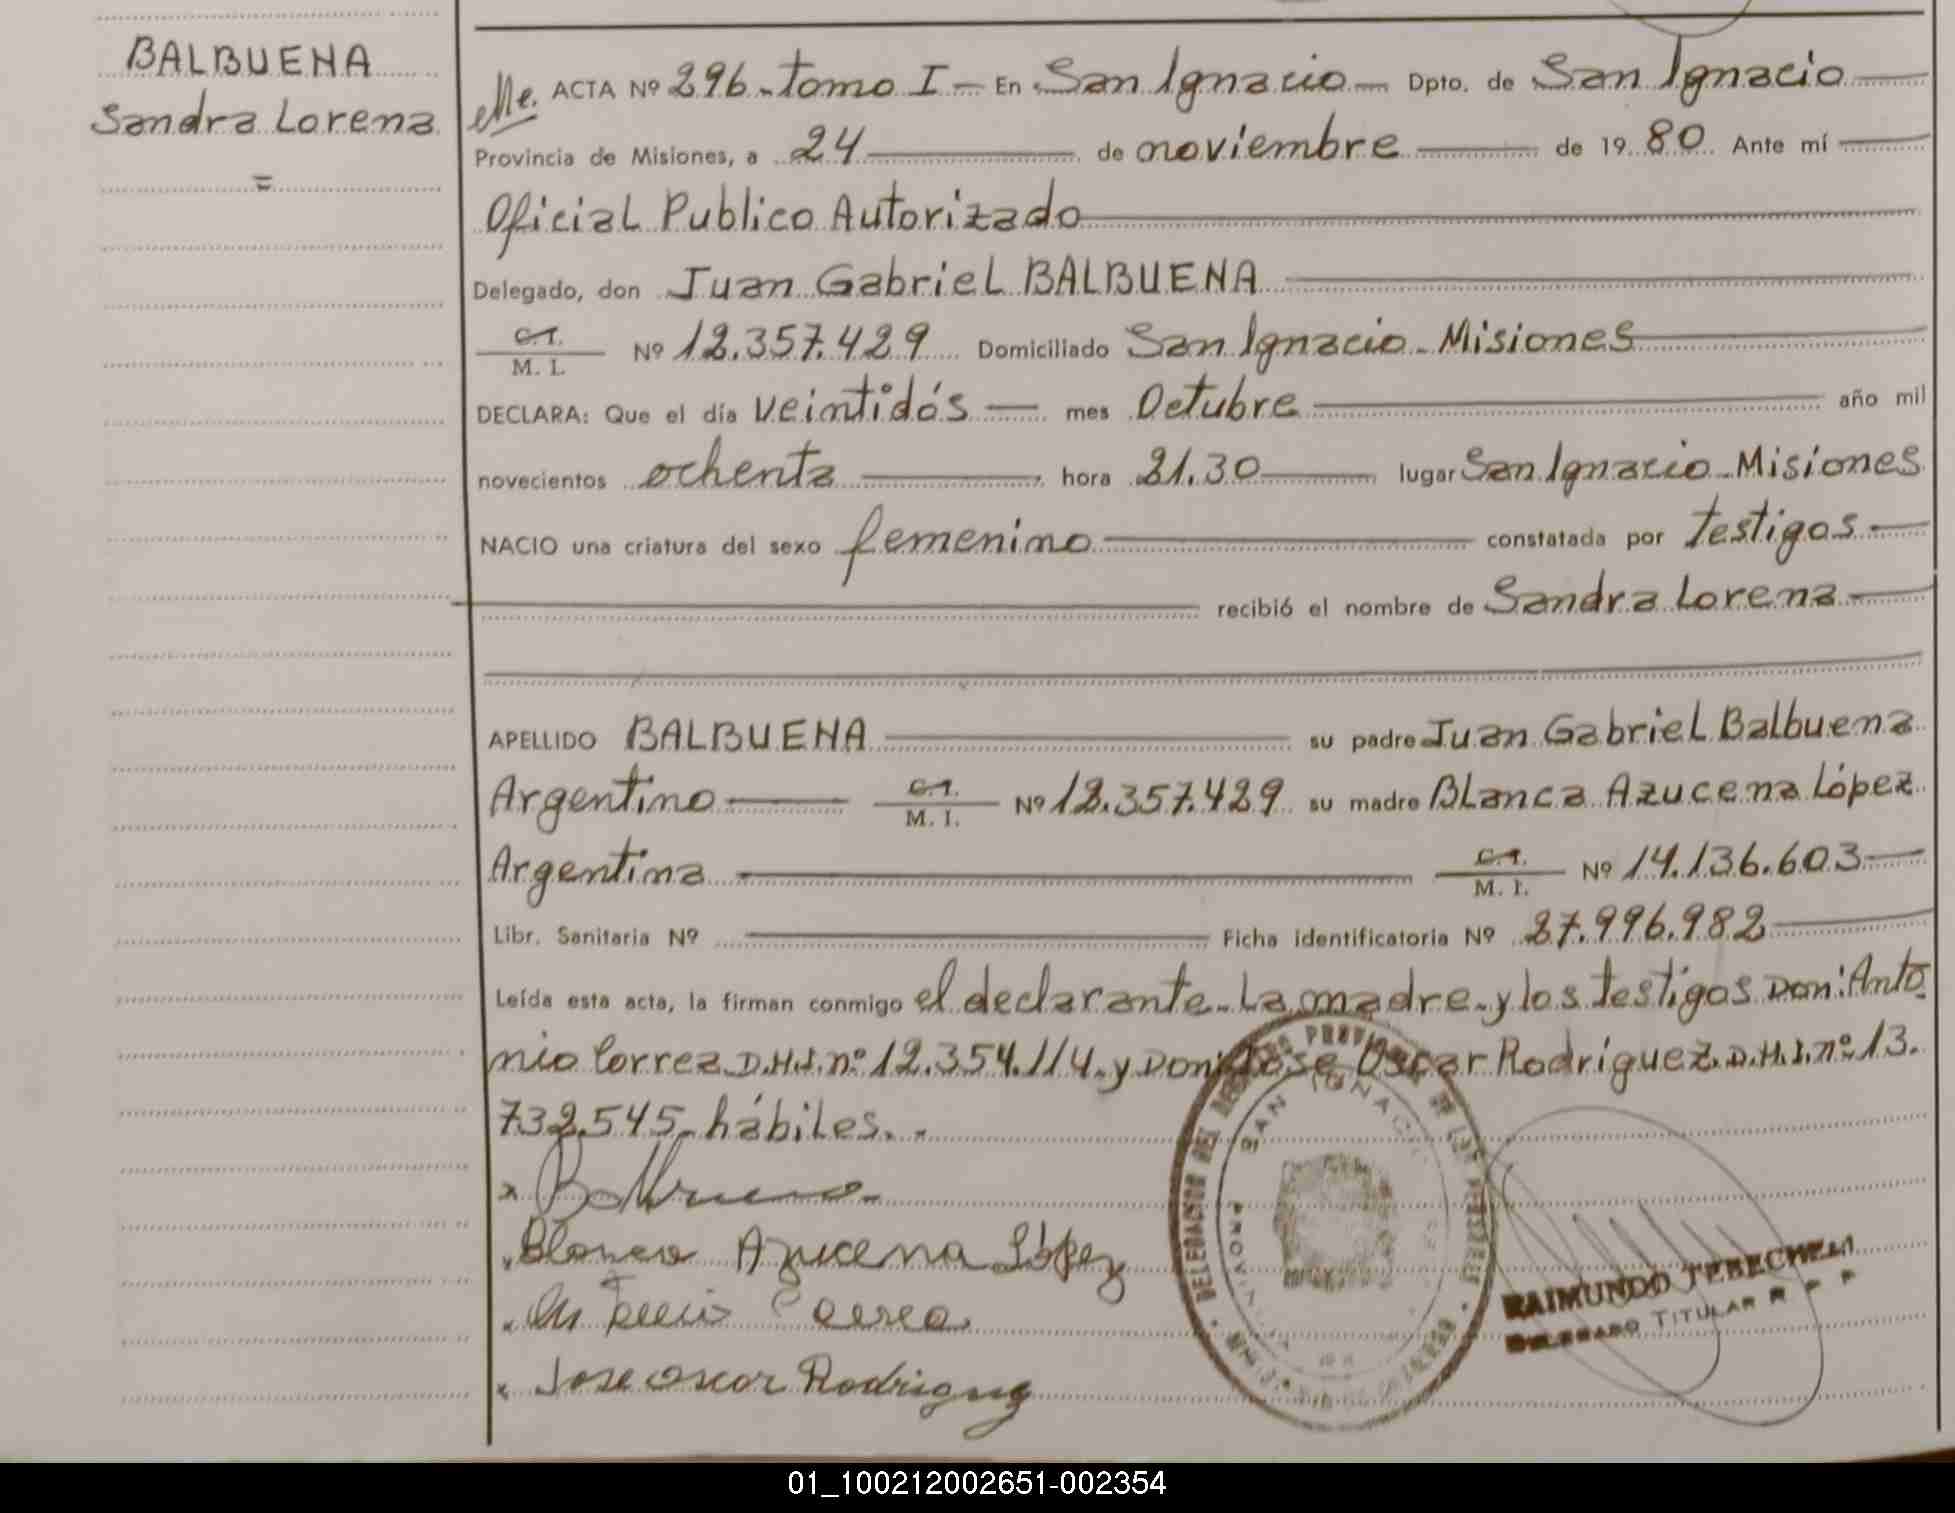 BALBUENA
Sandra Lorena
=
ACTA Nº 296 - tomo I - En San Ignacio - Dpto. de San Ignacio
Provincia de Misiones, a 24 de noviembre de 19 80 Ante mí
Oficial Publico Autorizado
Delegado, don Juan Gabriel BALBUENA
C.I.
M. I. Nº 12.357.429 Domiciliado San Ignacio - Misiones
DECLARA: Que el día veintidós mes Octubre año mil
novecientos ochenta hora 21.30 lugar San Ignacio - Misiones
NACIO una criatura del sexo femenino constatada por testigos
recibió el nombre de Sandra Lorena
APELLIDO BALBUENA su padre Juan Gabriel Balbuena
Argentino C.I. M. I. Nº 12.357.429 su madre Blanca Azucena López
Argentina C.I. M. I. Nº 14.136.603
Libr. Sanitaria Nº Ficha identificatoria Nº 27.996.982
Leída esta acta, la firman conmigo el declarante - La madre - y los testigos Don: Anto
nio Correa D.N.I. nº 12.354.114 - y Don: José Oscar Rodríguez D.N.I. nº 13.
732.545 - hábiles. -
x Balbuena
x Blanca Azucena López
x Antonio Correa
x Jose oscar Rodriguez
DELEGACION DEL REGISTRO PROVINCIAL DE LAS PERSONAS
SAN IGNACIO
RAIMUNDO
DELEGADO TITULAR R P P
01_100212002651-002354